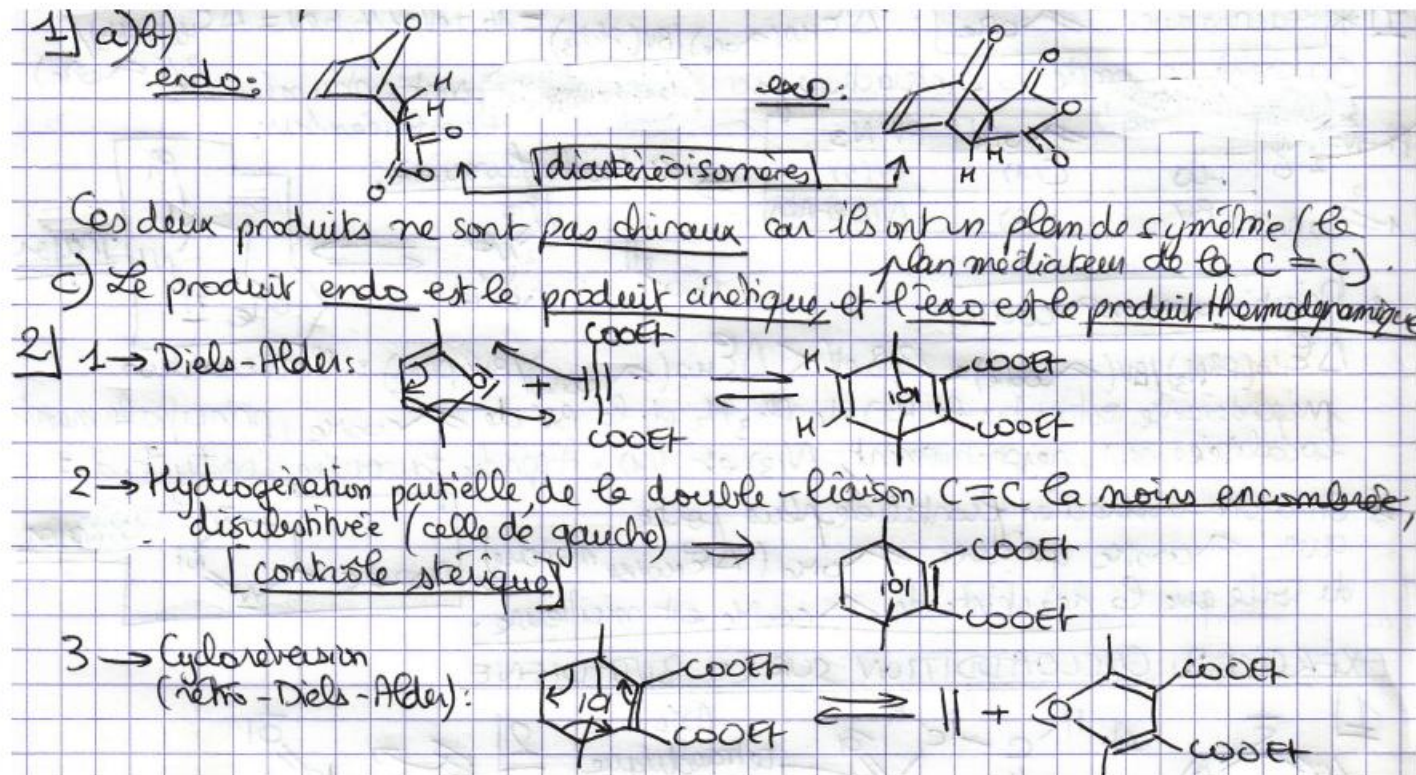 1] a) b)
endo: O H H O O O
exo: O O O O H H
diastéréoisomères
Ces deux produits ne sont pas chiraux car ils ont un plan de symétrie (le
plan médiateur de la C=C).
c) Le produit endo est le produit cinétique, et l'exo est le produit thermodynamique
2] 1 → Diels-Alder: O + COOEt COOEt ⇌ H H O COOEt COOEt
2 → Hydrogénation partielle, de la double-liaison C=C la moins encombrée,
disubstituée (celle de gauche) ⇒ O COOEt COOEt
[contrôle stérique]
3 → Cycloréversion
(rétro-Diels-Alder): O COOEt COOEt ⇌ || + O COOEt COOEt